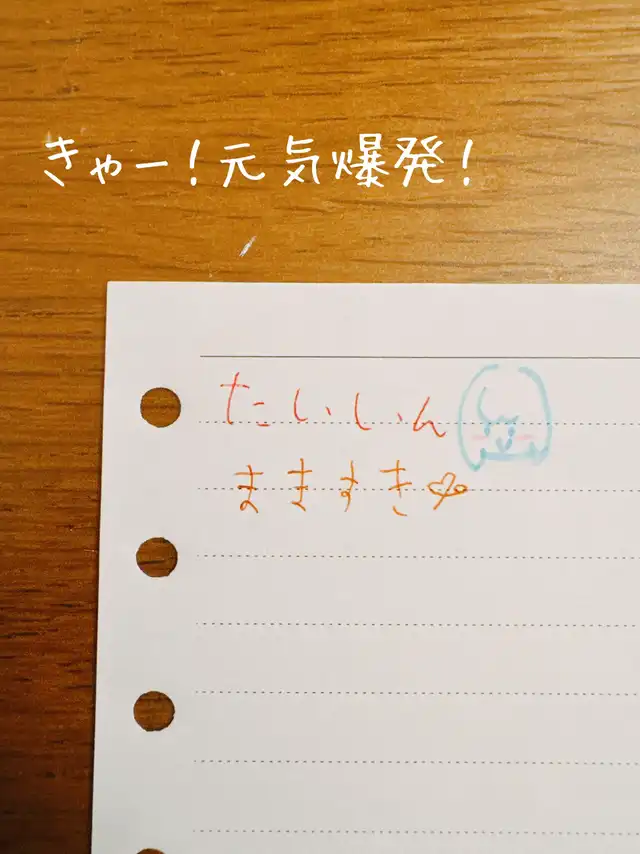 きゃー！元気爆発！
たいいいん
ままますき♡